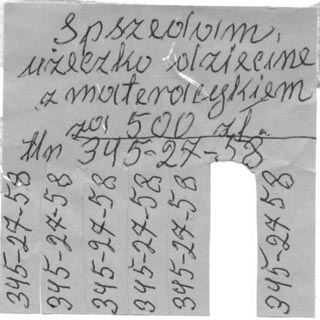 Spszedam,
użeczko dziecine
z materacykiem
za 500 zł.
tln 345-27-58
345-27-58
345-27-58
345-27-58
345-27-58
345-27-58
345-27-58